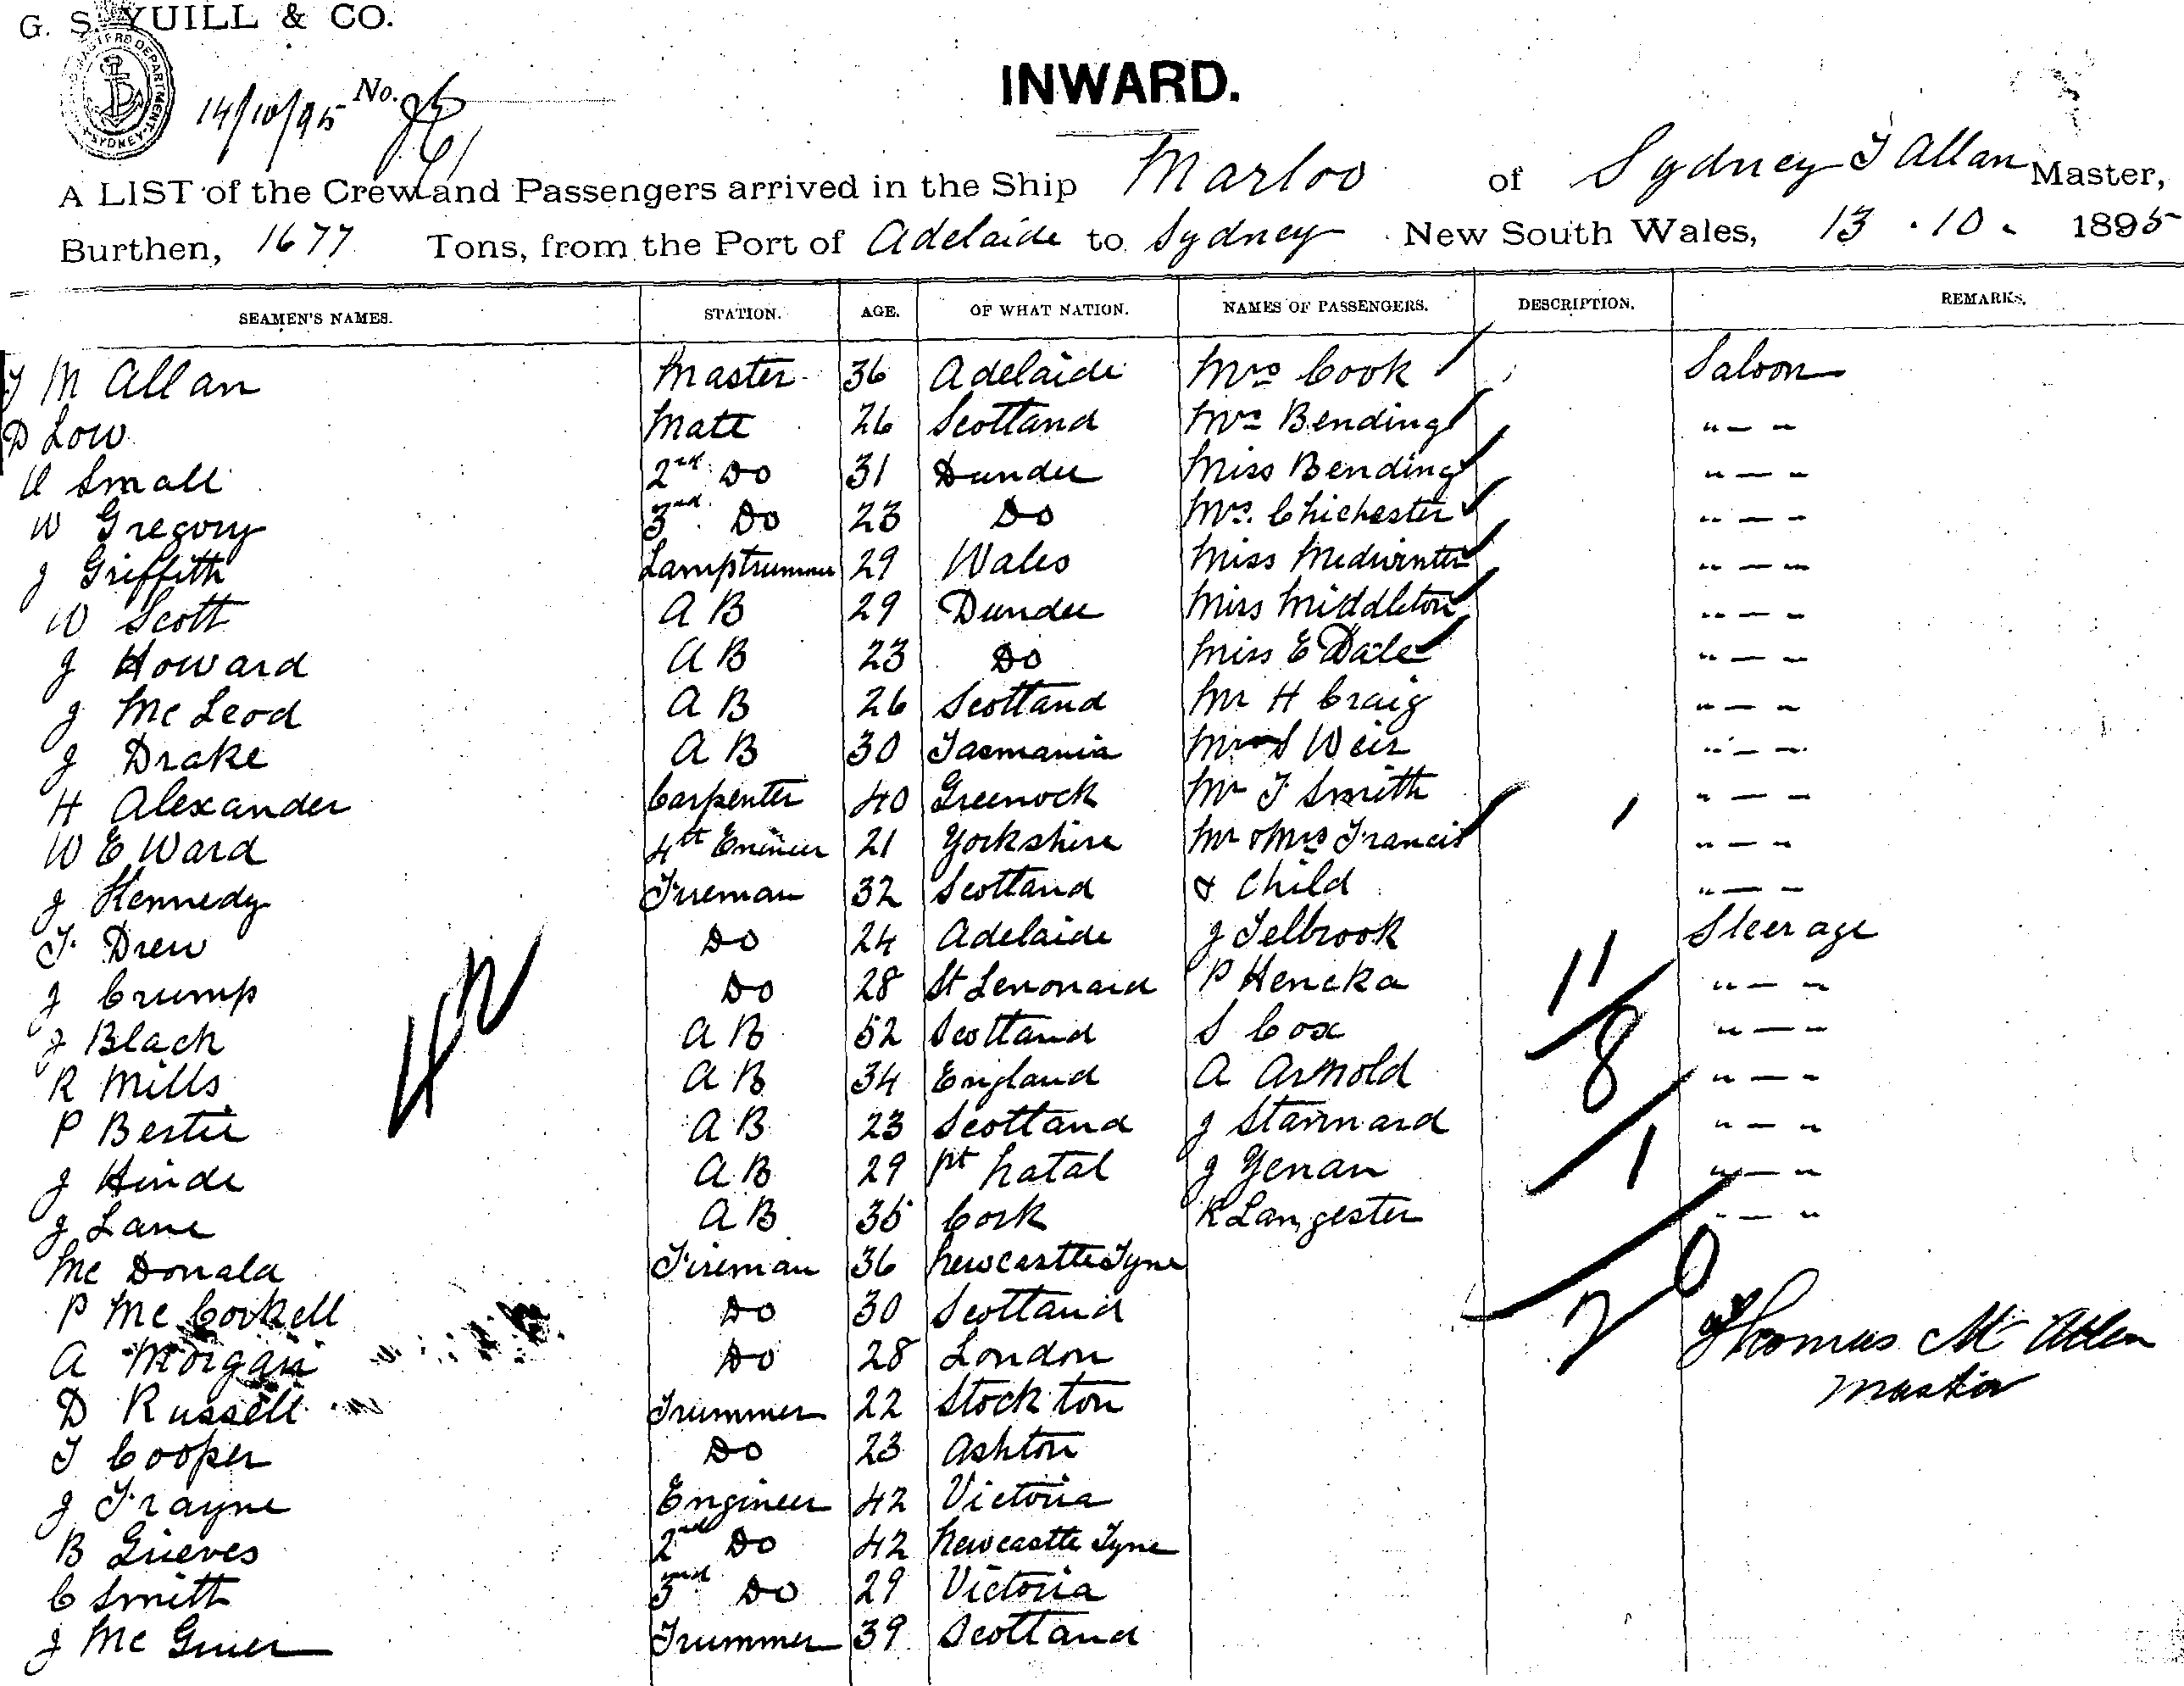 G. S. YUILL & CO.
14/10/95 No.
INWARD.
A LIST of the Crew and Passengers arrived in the Ship Marloo of Sydney T Allan Master,
Burthen, 1677 Tons, from the Port of Adelaide to Sydney New South Wales, 13 . 10 . 1895
SEAMEN'S NAMES. STATION. AGE. OF WHAT NATION. NAMES OF PASSENGERS. DESCRIPTION. REMARKS.
T M Allan Master 36 Adelaide Mrs Cook Saloon
D Low Mate 26 Scotland Mrs Bending " — "
Small 2nd Do 31 Dundee Miss Bending " — "
W Gregory 3rd Do 23 Do Mrs. Chichester " — "
J Griffith Lamptrimmer 29 Wales Miss Midwinter " — "
W Scott A B 29 Dundee Miss Middleton " — "
J Howard A B 23 Do Miss E Dale " — "
J McLeod A B 26 Scotland Mr H Craig " — "
J Drake A B 30 Tasmania Weir " — "
H Alexander Carpenter 40 Greenock Mr T Smith " — "
W E Ward 4th 21 Yorkshire Mr & Mrs Francis " — "
J Kennedy Fireman 32 Scotland & Child " — "
T. Drew Do 24 Adelaide J Telbrook 11 Steerage
J Crump Do 28 St Lenonard P Hencka " — "
J Black A B 52 Scotland S Cox 8 " — "
R Mills A B 34 England A Arnold " — "
P Bertie A B 23 Scotland J Stannard " — "
J Hinde A B 29 Pt Natal J Yenan 1 " — "
J Lane A B 35 Cork R Langester " — "
Mc Donald Fireman 36 Newcastle Tyne
P McCorkell Do 30 Scotland 20
A Morgan Do 28 London Thomas M Allan
D Russell Trimmer 22 Stockton Master
T Cooper Do 23 Ashton
J Trayne Engineer 42 Victoria
B Grieves 2nd Do 42 Newcastle Tyne
C Smith 3rd Do 29 Victoria
J Mc Trimmer 39 Scotland
42